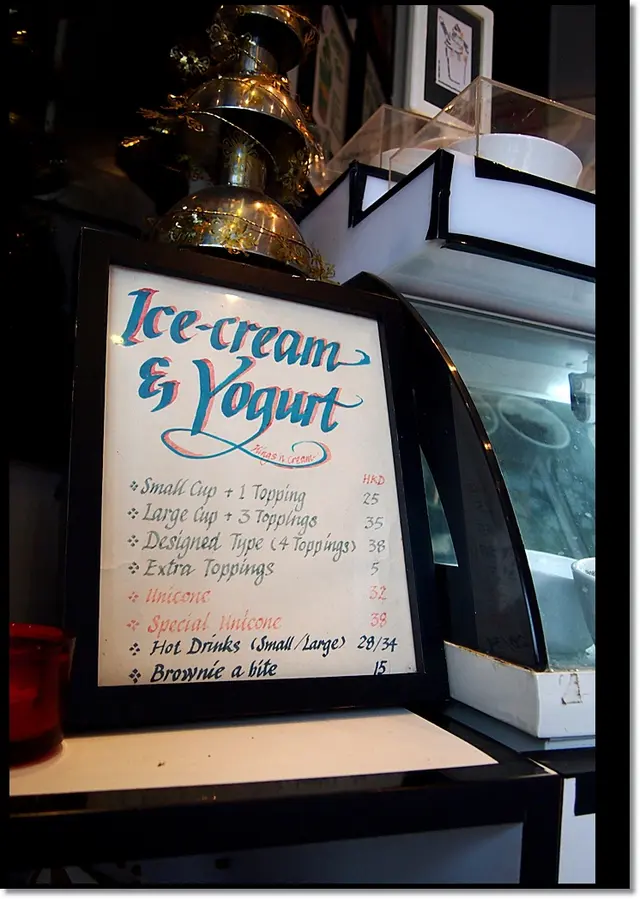 Ice-cream
& Yogurt
Kings n Cream
HKD
Small Cup + 1 Topping 25
Large Cup + 3 Toppings 35
Designed Type (4 Toppings) 38
Extra Toppings 5
Unicone 32
Special Unicone 38
Hot Drinks (Small/Large) 28/34
Brownie a bite 15